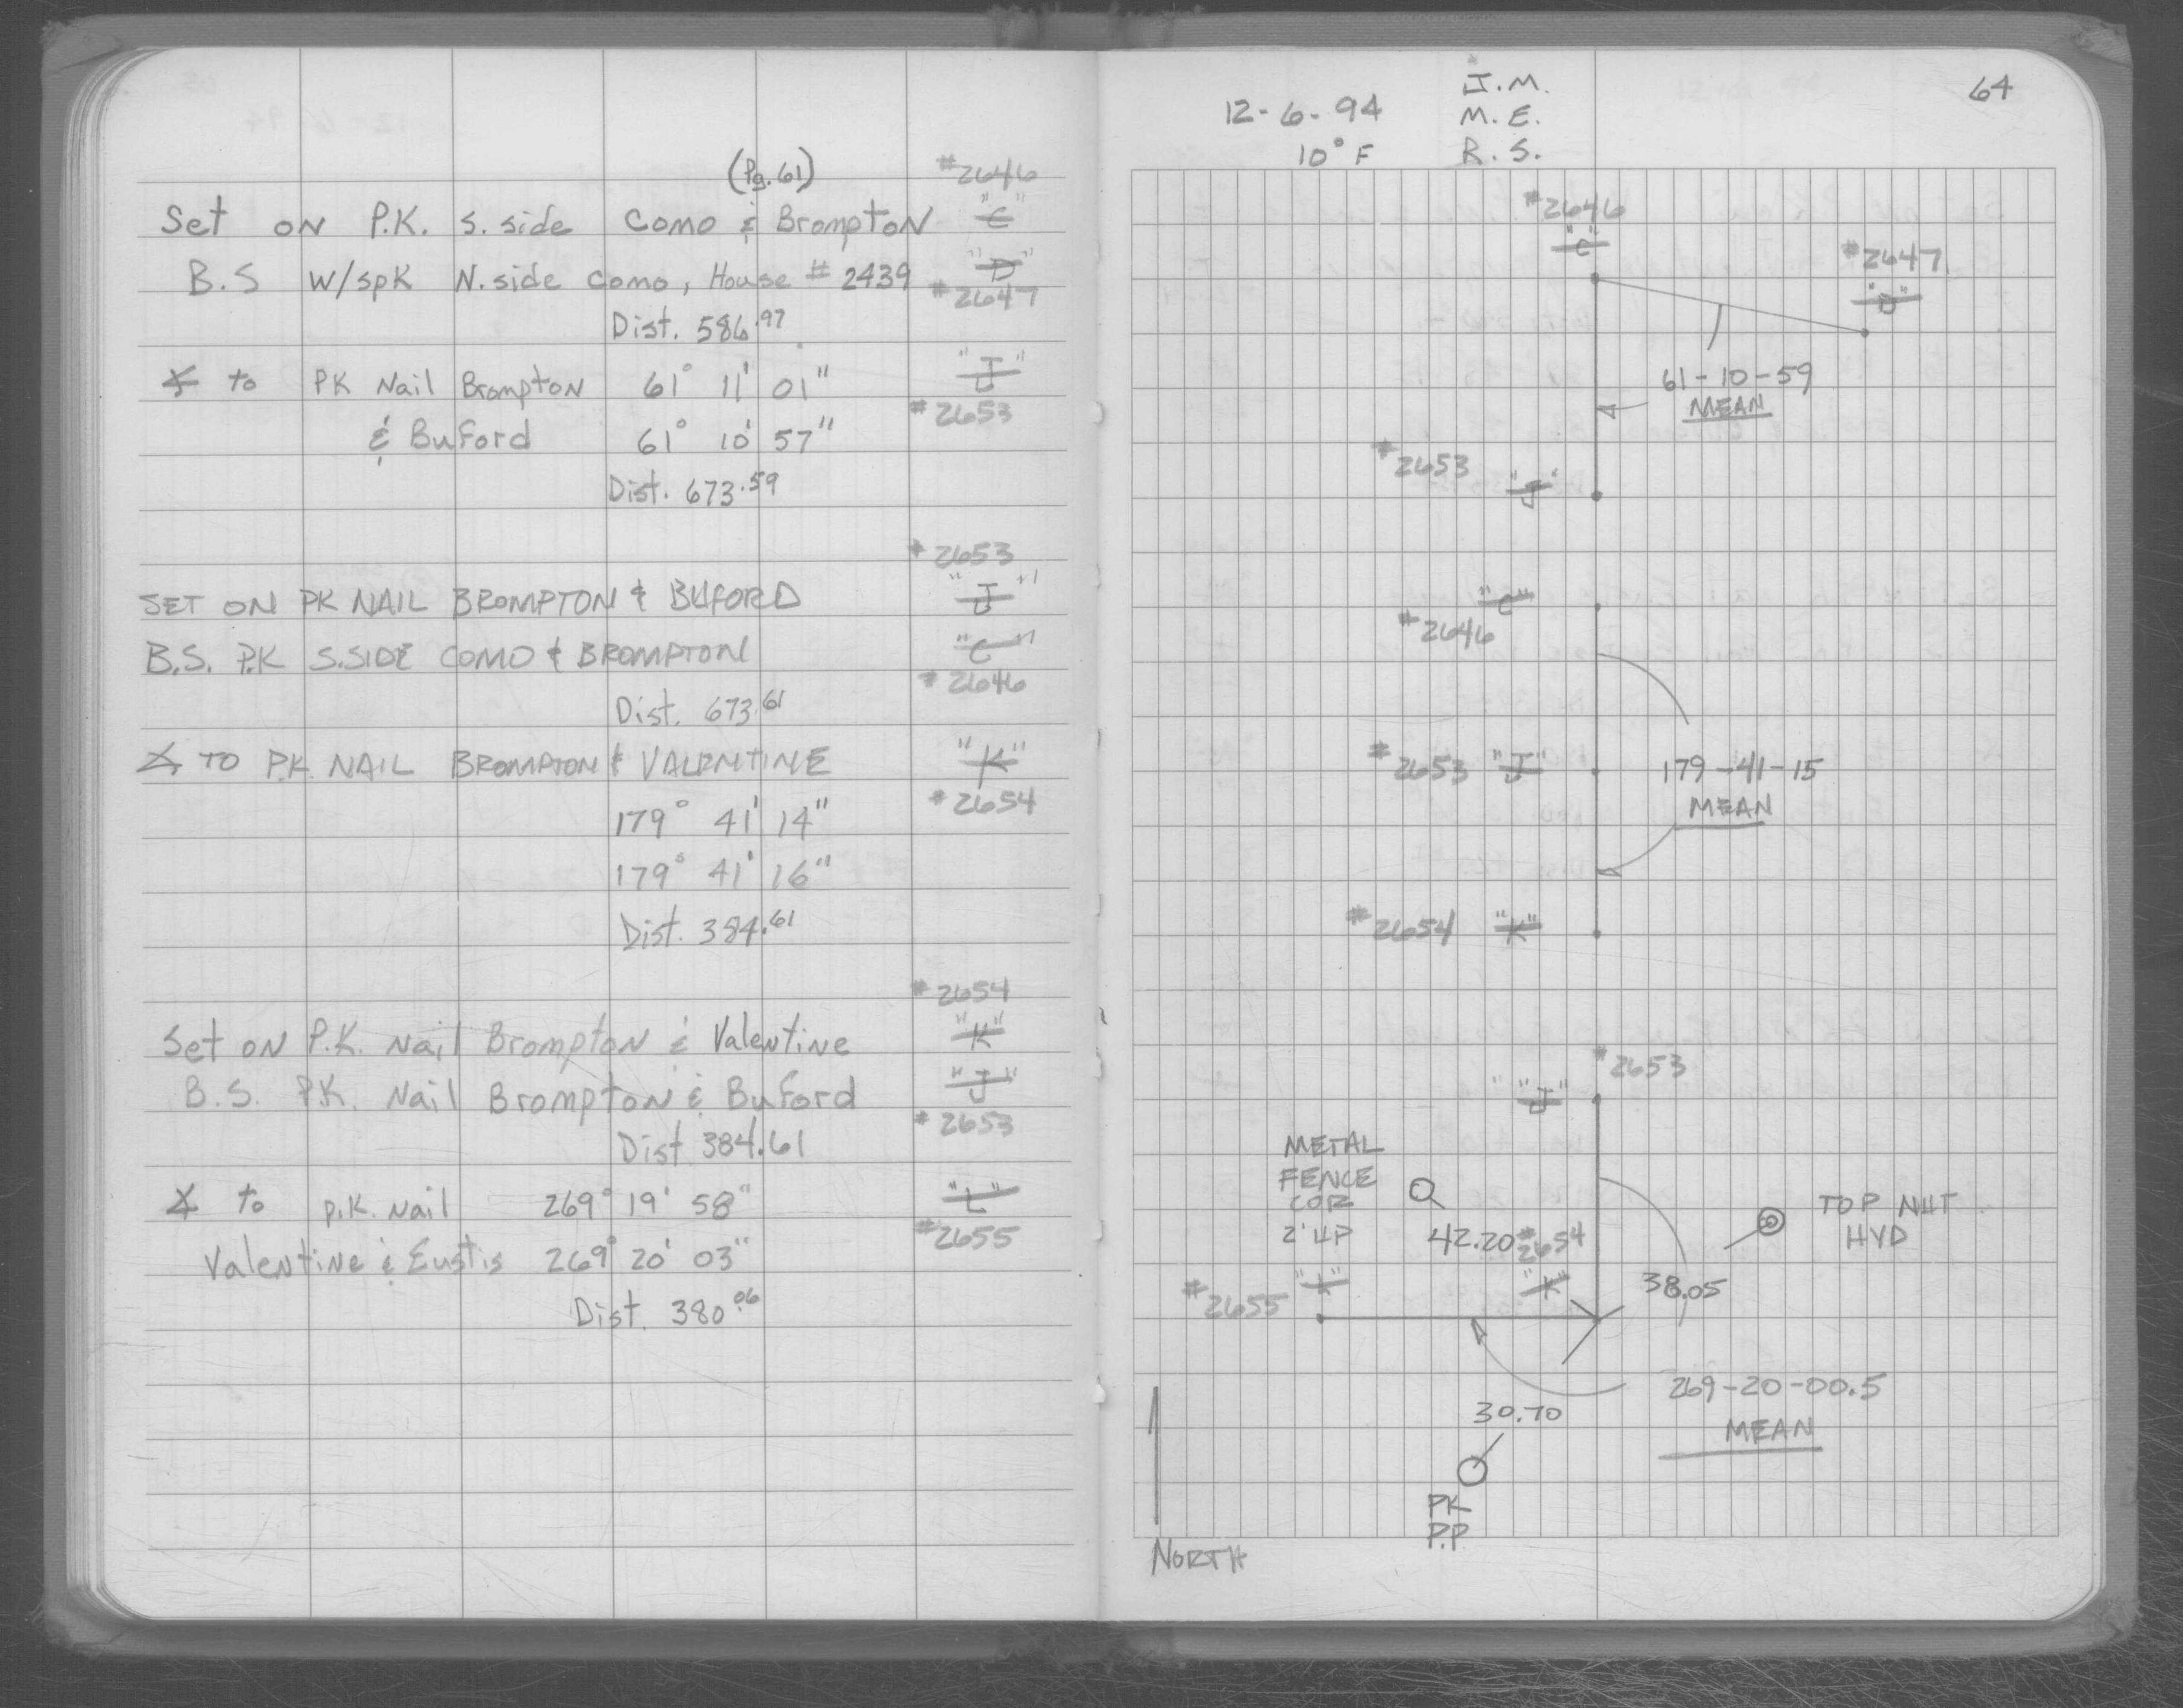 (Pg. 61) #2646
Set on P.K. S. side Como & Brompton "C"
B.S W/spk N. side Como, House # 2439 "D"
#2647
Dist. 586.97
∡ to PK Nail Brompton 61° 11' 01" "J"
#2653
& Buford 61° 10' 57"
Dist. 673.59
#2653
SET ON PK NAIL BROMPTON & BUFORD "J"
B.S. P.K S.SIDE COMO & BROMPTON "C"
#2646
Dist. 673.61
∡ TO P.K. NAIL BROMPTON & VALENTINE "K"
#2654
179° 41' 14"
179° 41' 16"
Dist. 384.61
#2654
Set on P.K. Nail Brompton & Valentine "K"
B.S. P.K. Nail Brompton & Buford "J"
#2653
Dist 384.61
∡ to P.K. Nail 269° 19' 58" "L"
#2655
Valentine & Eustis 269° 20' 03"
Dist. 380.06
64
J.M.
12-6-94 M.E.
10°F R.S.
#2646
"C"
#2647
"D"
61-10-59
MEAN
#2653 "J"
"C"
#2646
#2653 "J" 179-41-15
MEAN
#2654 "K"
#2653
"J"
METAL
FENCE
COR
2' UP
42.20
#2654
TOP NUT
HYD
"K"
38.05
#2655
269-20-00.5
MEAN
30.70
PK
P.P.
NORTH